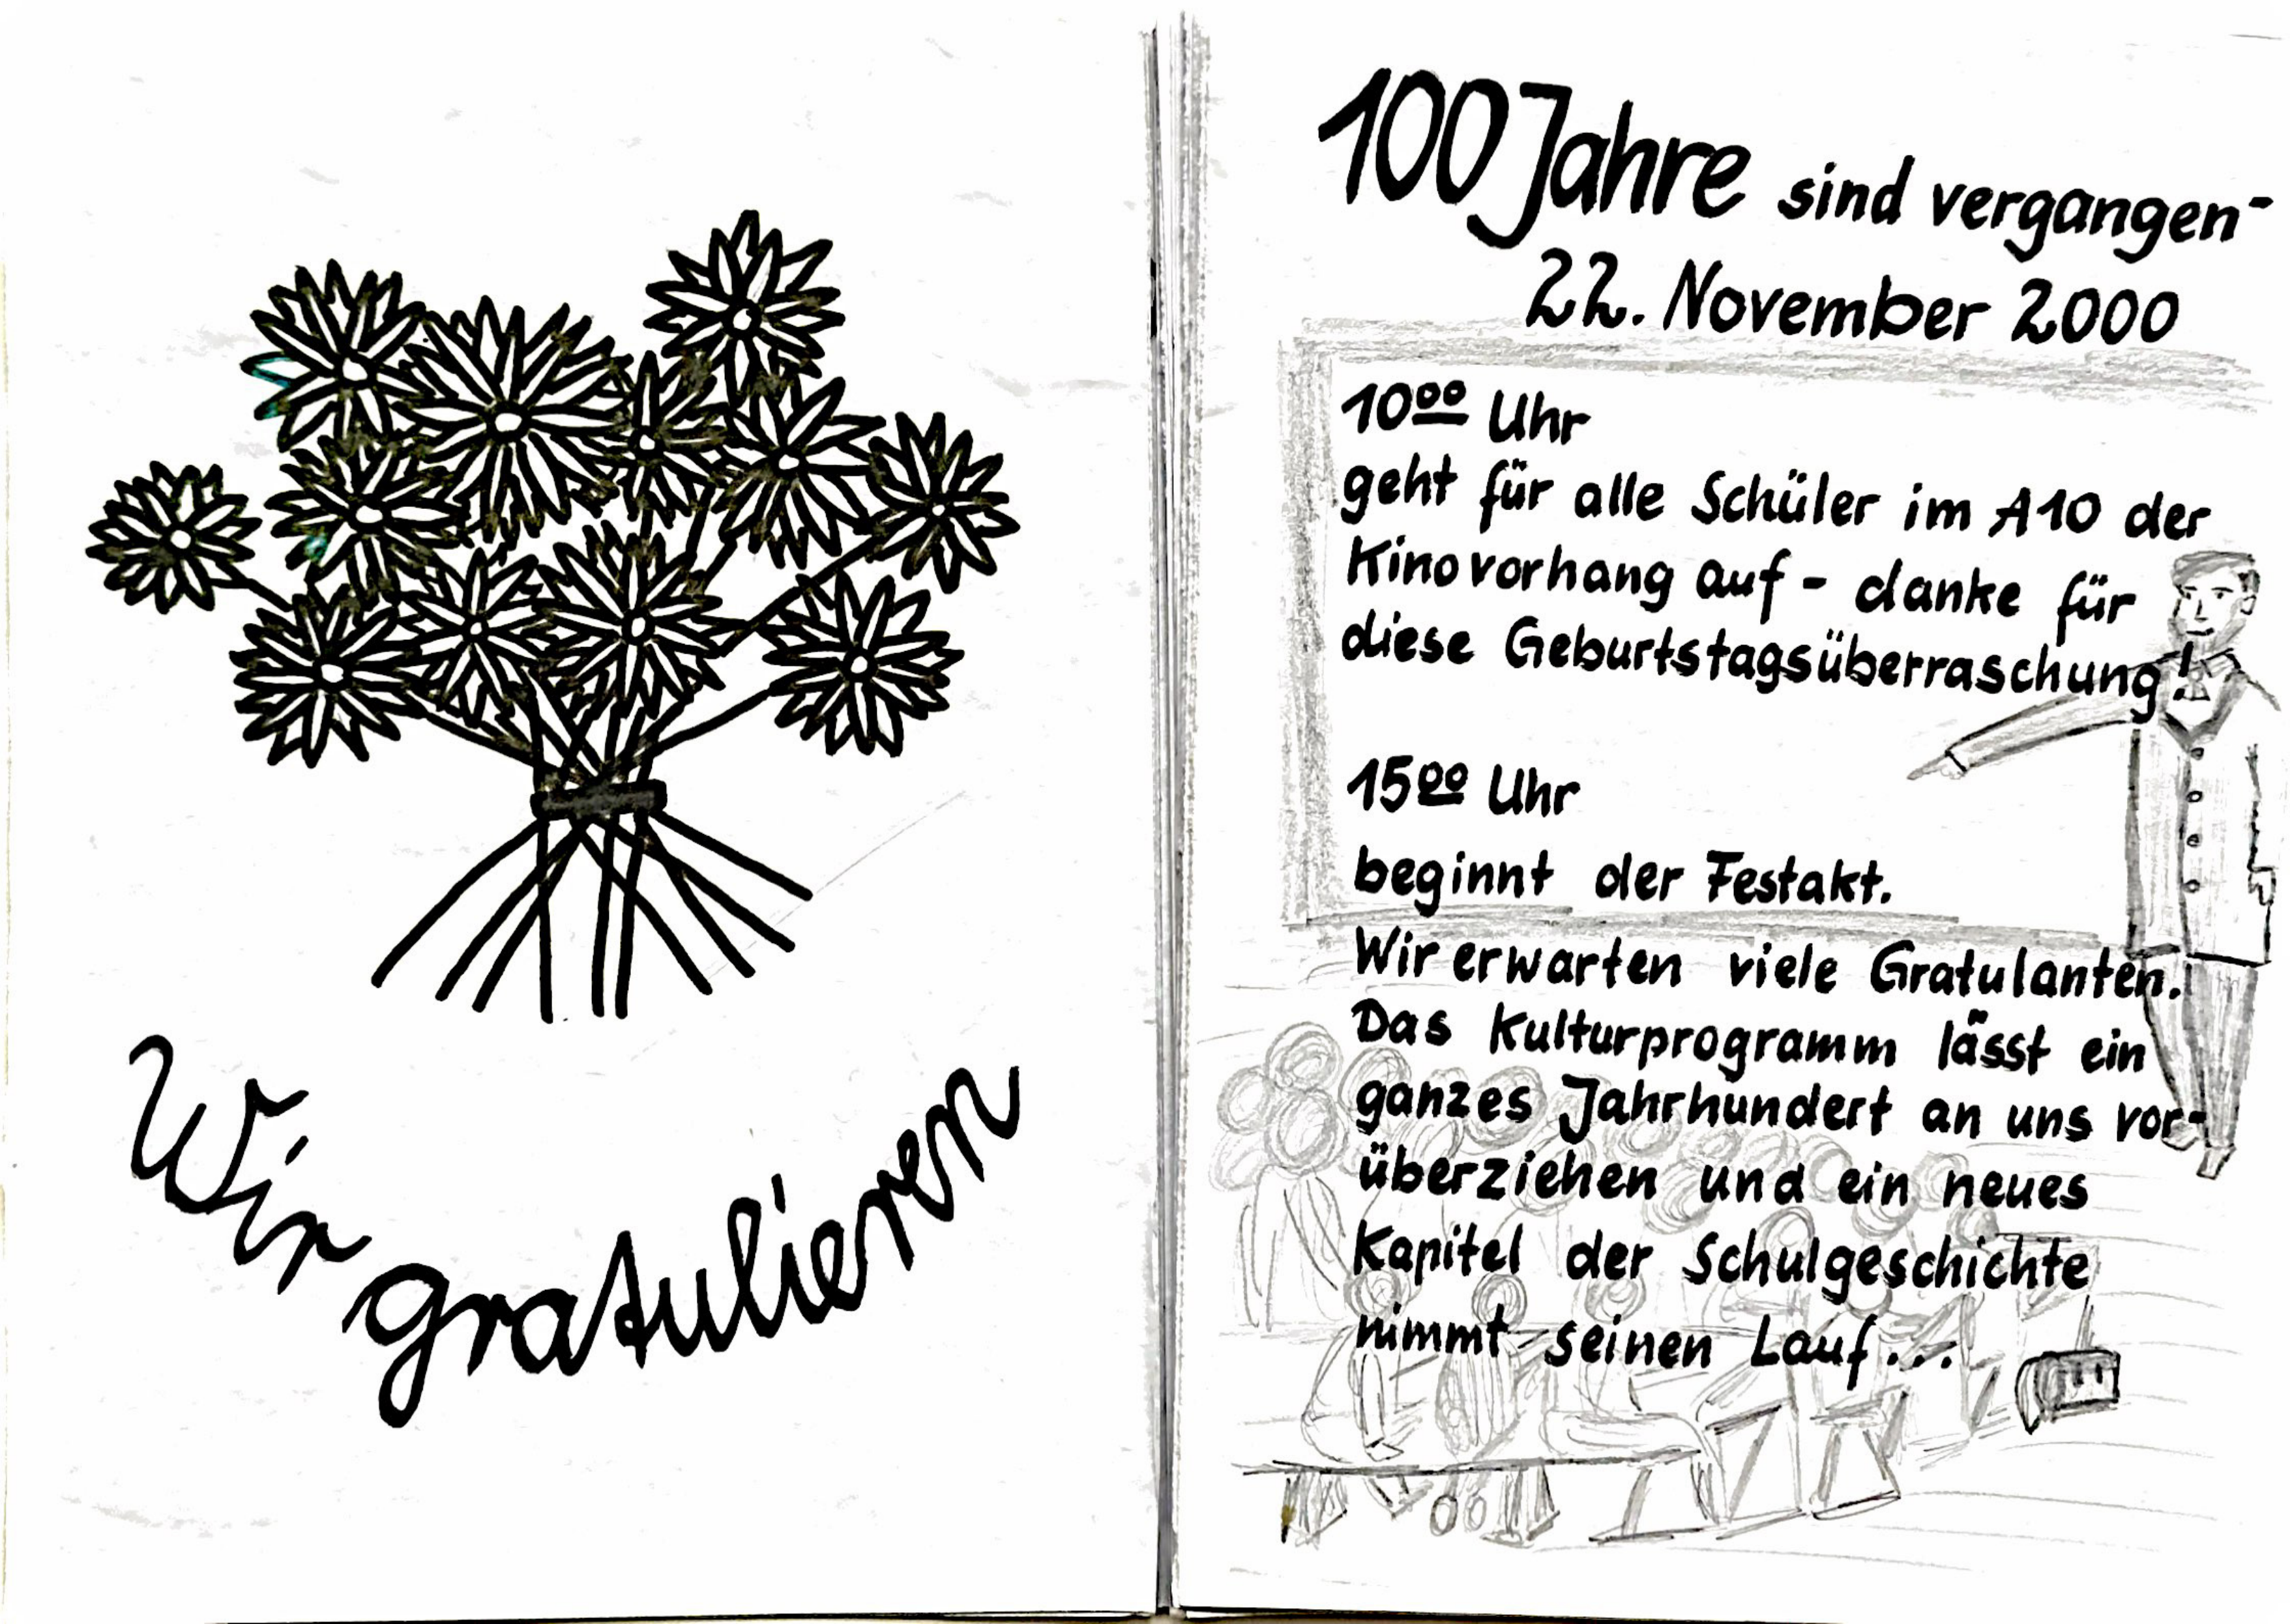 Wir gratulieren
100 Jahre sind vergangen-
22. November 2000
10⁰⁰ Uhr
geht für alle Schüler im A10 der
Kinovorhang auf - danke für
diese Geburtstagsüberraschung!
15⁰⁰ Uhr
beginnt der Festakt.
Wir erwarten viele Gratulanten.
Das Kulturprogramm lässt ein
ganzes Jahrhundert an uns vor-
überziehen und ein neues
Kapitel der Schulgeschichte
nimmt seinen Lauf...